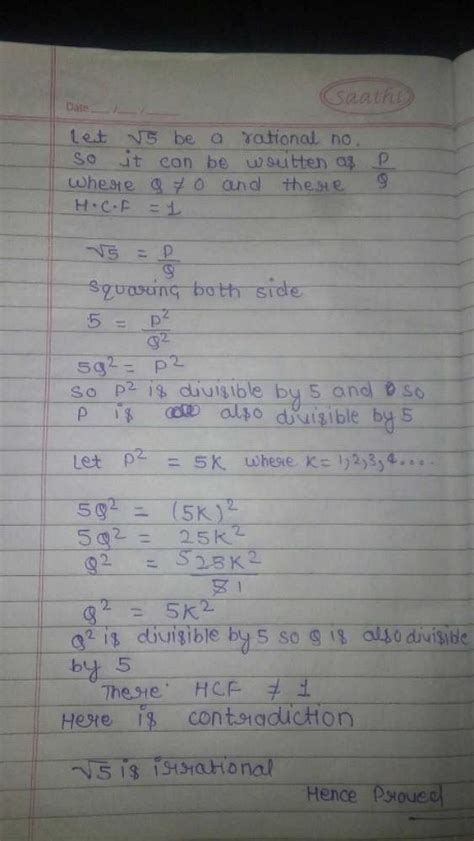 Saathi
Date ___/___/___
Let √5 be a rational no.
So it can be written as P/Q
where Q ≠ 0 and there
H.C.F = 1
√5 = P/Q
Squaring both side
5 = P²/Q²
5Q² = P²
So P² is divisible by 5 and so
P is also divisible by 5
Let P² = 5K where K = 1,2,3,4....
5Q² = (5K)²
5Q² = 25K²
Q² = 5 25K²/5 1
Q² = 5K²
Q² is divisible by 5 so Q is also divisible
by 5
There HCF ≠ 1
Here is contradiction
√5 is irrational
Hence Proved